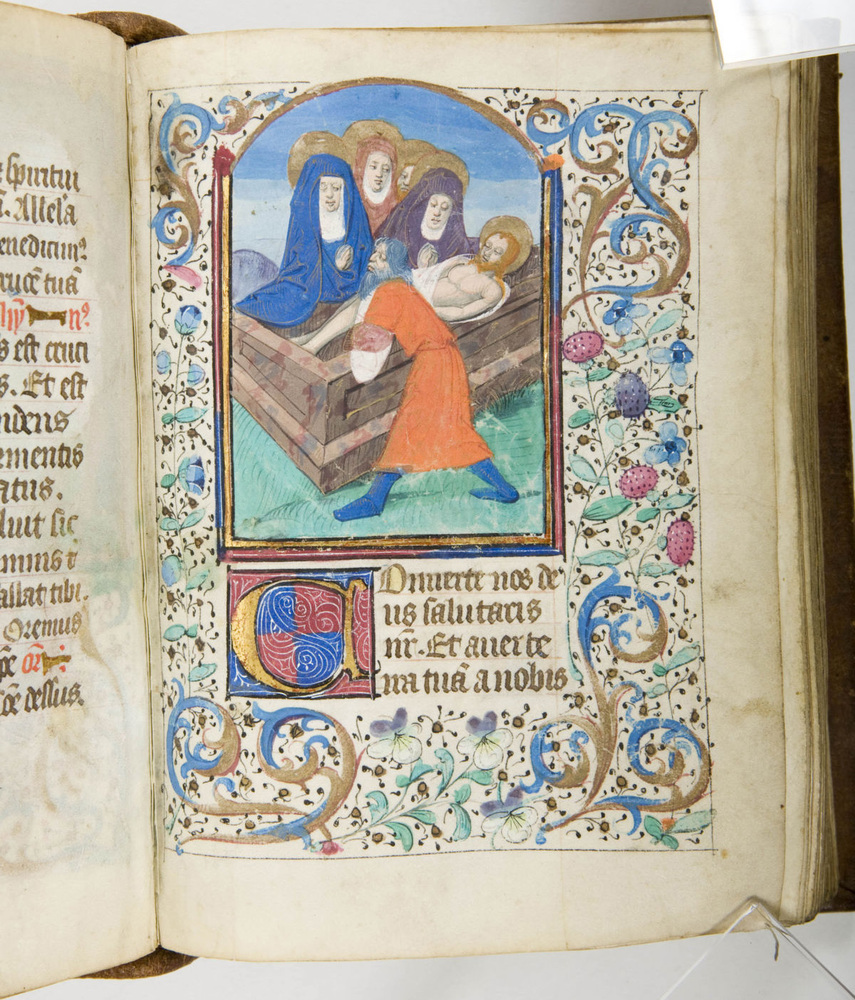 spiritui
Allela
enedicim⁹
ruce tuā
n⁹
s est cruci
s. Et est
ndens
rmentis
atus.
luit sic
minis t
assat tibi.
Oremus
oē dessus.
Conuerte nos de
us salutaris
nr̄. Et auerte
ira tuā a nobis